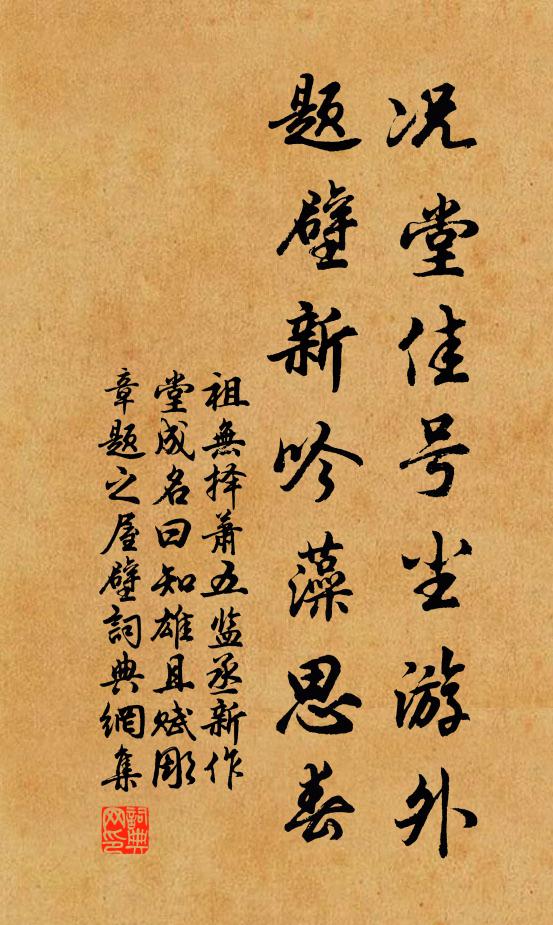 况堂佳号尘游外
题壁新吟藻思春
祖無择萧五监丞新作
堂成名曰知雄且赋彫
章题之屋壁詞典網集
詞典
网印